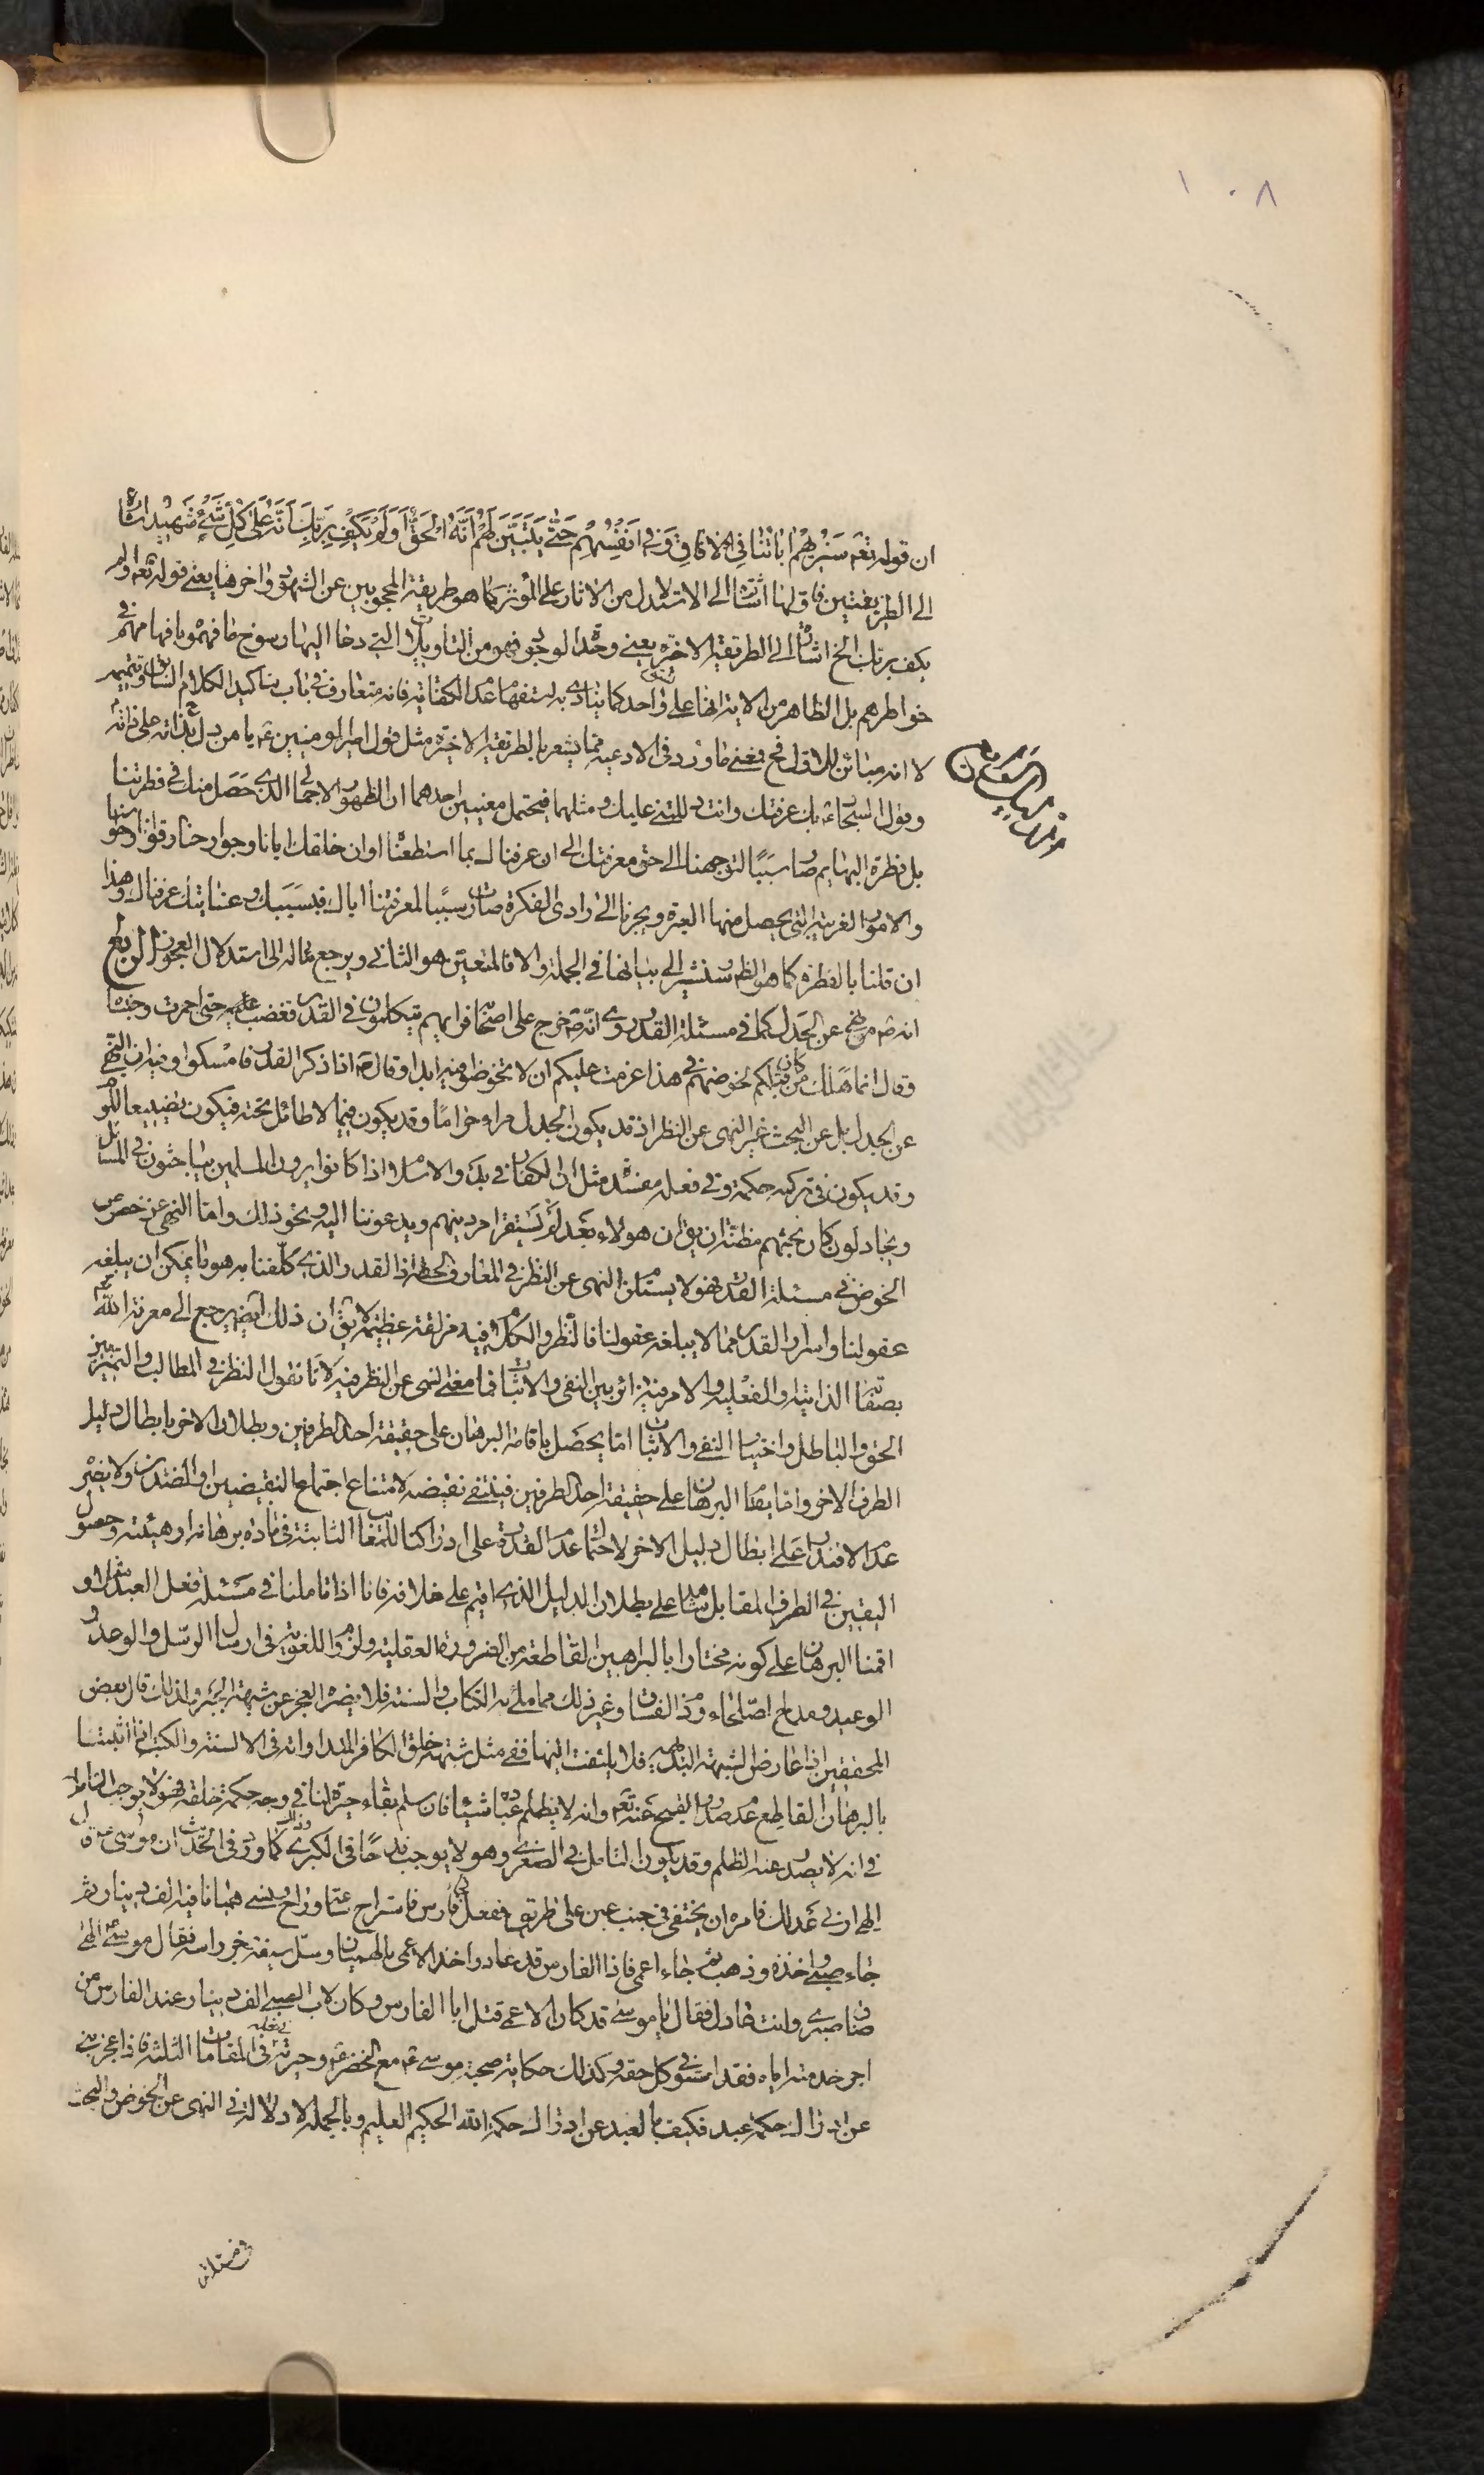 ١٠٨
ان قوله تعه سَنُرِيهِمْ ايَاتِنَا فِي الْافَاقِ وَفِي اَنفُسِهِمْ حَتّٰى يَتَبَيَّنَ لَهُمْ اَنَّهُ الْحَقُّ اَوَلَمْ يَكْفِ بِرَبِّكَ اَنَّهُ عَلٰى كُلِّ شَيْءٍ شَهِيد اشارة
الى الطريقتين فاولها اشارة الى الاستدلال من الاثار على المؤثر كما هو طريقة المحجوبين عن الشهود واخرها يعنى قوله تعه اولم
يكف بربك الخ اشارة الى الطريقة الاخيره يعنى وحدة الوجود فهو من التاويلات التي دعا اليها رسوخ ما فهموه بافهامهم في
خواطرهم بل الظاهر من الاية انها على نسق واحد كما ينادى به استفهام عدم الكفاية فانه متعارف في باب تاكيد الكلام السابق وتتميمه
لا انه مباين للاول فح معنى ما ورد في الادعيه مما يشعر بالطريقة الاخيره مثل قول امير المومنين ع يا من دل بذاته على ذاته
وقول السجاد ع بك عرفتك وانت دللتني عليك ومثلهما فيحتمل معنيين احدهما ان الظهور الاجمالي الذي حَصَل منك في فطرتنا
بل فطرة البهايم صار سَبَبًا لتوجهنا الى حق معرفتك الى ان عرفناك بما استطعنا او ان خلقك ايانا وجوارحنا وقوانا ونحوها
والامور الغريبة التي يحصل منها العبرة ويجرنا الى وادى الفكرة صارت سببًا لمعرفتنا اياك فبسَبَبك وعنايتك عرفناك وهذا
ان قلنا بالفطرة كما هو الظ وسنشير الى بيانها في الجملة والا فالمتعين هو الثاني ويرجع بماله الى استدلال العجوز الرابع
انه ص نهى عن الجدل كما في مسئلة القدر روى انه ص خرج على اصحابه فراهم يتكلمون في القدر فغضب حتى احمرت وجنتاه
وقال انما هلك من كان قبلكم لخوضهم في هذا عزمت عليكم ان لا تخوضوا فيه ابدا وقال ص اذا ذكر القدر فامسكوا وفيه ان النهى
عن الجدل بل عن البحث غير النهى عن النظر اذ قد يكون الجدل مراء حرامًا وقد يكون فيما لا طائل تحته فيكون تضييعا للعمر
وقد يكون في تركه حكمة وفي فعله مفسدة مثل ان الكفار في بدء الاسلام اذا كانوا يرون المسلمين يتباحثون في المسائل
ويجادلون كان بحثهم مظنة ان يق ان هولاء بعد لم يستقر امر دينهم ويدعوننا اليه ونحو ذلك واما النهى عن خصوص
الخوض في مسئلة القدر فهو لا يستلزم النهى عن النظر في المعارف الحقة اذ القدر الذي كلفنا به هو ما يمكن ان يبلغه
عقولنا واسرار القدر مما لا يبلغه عقولنا فالنظر والكلام فيه مزلقة عظيمة لا يق ان ذلك ايضه يرجع الى معرفة الله
بصفاته الذاتية والفعلية والامر فيه دائر بين النفى والاثبات فما معنى النهى عن النظر فيه لانا نقول النظر في المطالب والتمييز بين
الحق والباطل واختيار النفى والاثبات اما يحصل باقامة البرهان على حقيقة احد الطرفين وبطلان الاخر بابطال دليل
الطرف الاخر واما بقاء البرهان على حقيقة احد الطرفين فينتفى نقيضه لامتناع اجتماع النقيضين او الضدين ولا يضر
عدم الاقتدار على ابطال دليل الاخر لاحتمال عدم القدرة على ادراكنا للمغالطة الثابتة في مادة برهانه او هيئته وحصول
اليقين في الطرف المقابل شاهد على بطلان الدليل الذى اقيم على خلافه فانا اذا تاملنا في مسئلة فعل العبد مثلا و
اقمنا البرهان على كونه مختارا بالبراهين القاطعة من الضرورة العقلية ولزوم اللغوية في ارسال الرسل والوعد و
الوعيد ومدايح الصلحاء وذم الفساق وغير ذلك مما ملئ به الكتاب والسنة فلا يضره العجز عن شبهة الجبر ولذلك قال بعض
المحققين اذا عارض الشبهة البداهة فلا يلتفت اليها ففى مثل شبهة خلق الكافر الابد اوانه في الالسنة والكتب انا اثبتنا
بالبرهان القاطع عدم صدور القبيح عنه تعه وانه لا يظلم عباده شيئا فان سلم بقاء حيرة لنا في وجه حكمة خلقه فهو لا يوجب التامل
في انه لا يصدر عنه الظلم وقد يكون التامل في الصغرى وهو لا يوجب قدحًا في الكبرى كما ورد في الحديث ان موسى ع قال
الهى ارنى عدلك فامره ان يختفى في جنب عين على طريق ففعل فاتى فارس فاستراح ساعة وراح ونسى هميانا فيه الف دينار ثم
جاء صبى واخذه وذهب ثم جاء اعمى فاذا الفارس قد عاد واخذ الاعمى بالهميان وسل سيفه وحز راسه فقال موسى الهى
ضاق صبرى وانت عادل فقال يا موسى قد كان الاعمى قتل ابا الفارس وكان لاب الصبى الف دينار عند الفارس من
اجر خدمته اياه فقد استوفى كل حقه وكذلك حكاية صحبة موسى ع مع الخضر ع وحيرته في فعله في المقامات الثلثة فاذا عجز نبى
عن ادراك حكمة عبد فكيف بالعبد عن ادراك حكمة الله الحكيم العليم وبالجملة لا دلالة في النهى عن الخوض والبحث